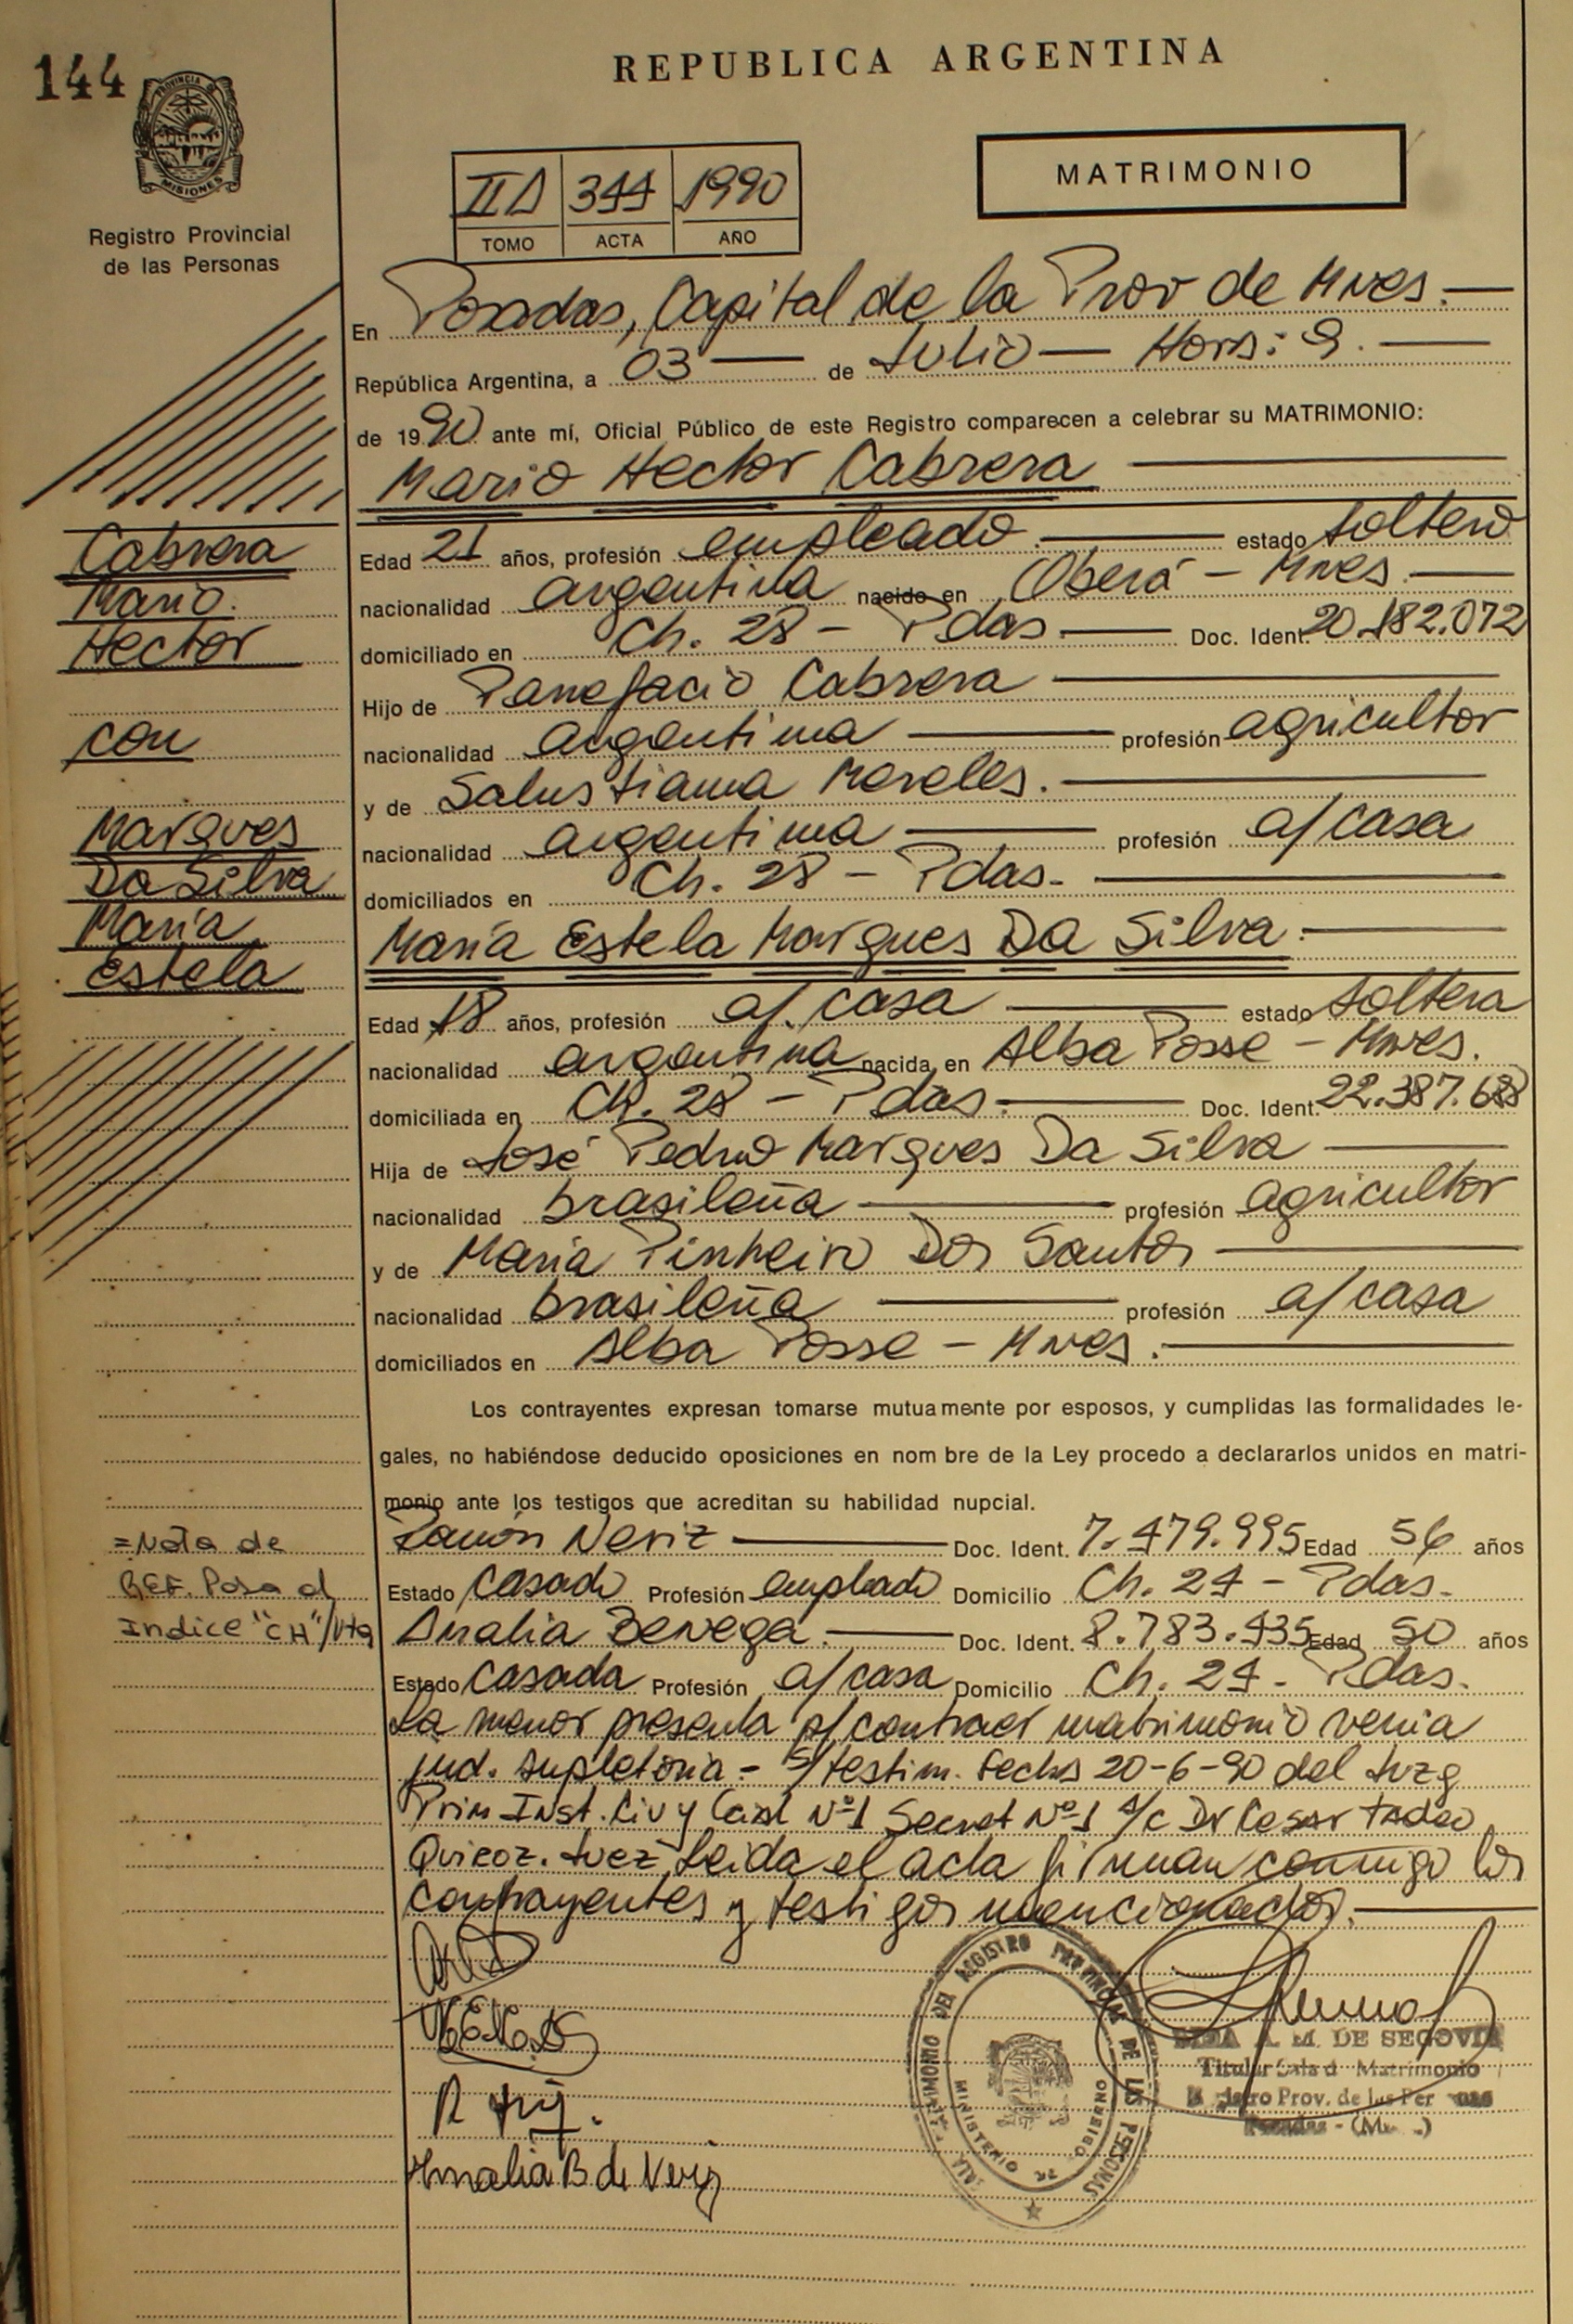 144
REPUBLICA ARGENTINA
PROVINCIA DE MISIONES
Registro Provincial
de las Personas
MATRIMONIO
II D 344 1990
TOMO ACTA AÑO
En Posadas, Capital de la Prov de Mnes.
República Argentina, a 03 de Julio Hora: 9.
de 1990 ante mí, Oficial Público de este Registro comparecen a celebrar su MATRIMONIO:
Mario Hector Cabrera
Edad 21 años, profesión empleado estado soltero
nacionalidad argentina nacido en Oberá - Mnes.
domiciliado en Ch. 28 - Pdas Doc. Ident. 20.182.072
Hijo de Panefacio Cabrera
nacionalidad argentina profesión agricultor
y de Salustiana Moreles.
nacionalidad argentina profesión a/casa
domiciliados en Ch. 28 - Pdas.
María Estela Marques Da Silva.
Edad 18 años, profesión a/. casa estado soltera
nacionalidad argentina nacida en Alba Posse - Mnes.
domiciliada en Ch. 28 - Pdas. Doc. Ident. 22.387.688
Hija de José Pedro Marques Da Silva
nacionalidad brasileña profesión agricultor
y de María Pinheiro Dos Santos
nacionalidad brasileña profesión a/casa
domiciliados en Alba Posse - Mnes.
Los contrayentes expresan tomarse mutuamente por esposos, y cumplidas las formalidades le-
gales, no habiéndose deducido oposiciones en nom bre de la Ley procedo a declararlos unidos en matri-
monio ante los testigos que acreditan su habilidad nupcial.
Ramón Neriz Doc. Ident. 7.479.995 Edad 56 años
Estado Casado Profesión empleado Domicilio Ch. 24 - Pdas.
Analia Benega. Doc. Ident. 8.783.435 Edad 50 años
Estado Casada Profesión a/casa Domicilio Ch. 24 - Pdas.
La menor presenta p/contraer matrimonio venia
jud. supletoria - s/testim. fecha 20-6-90 del Juzg
Prim Inst. Civ y Cial Nº 1 Secret Nº 1 a/c Dr Cesar Tadeo
Quiroz. Juez, Leida el acta firman conmigo los
contrayentes y testigos mencionados.
Cabrera
Mario
Hector
con
Marques
Da Silva
María
Estela
=Nota de
REF. Pasa al
Indice "CH"/Vta
Amalia B de Veriz
DEL REGISTRO PROVINCIAL DE LAS PERSONAS
MINISTERIO DE GOBIERNO
A. M. DE SEGOVIA
Titular Sala d Matrimonio
Prov. de las Per